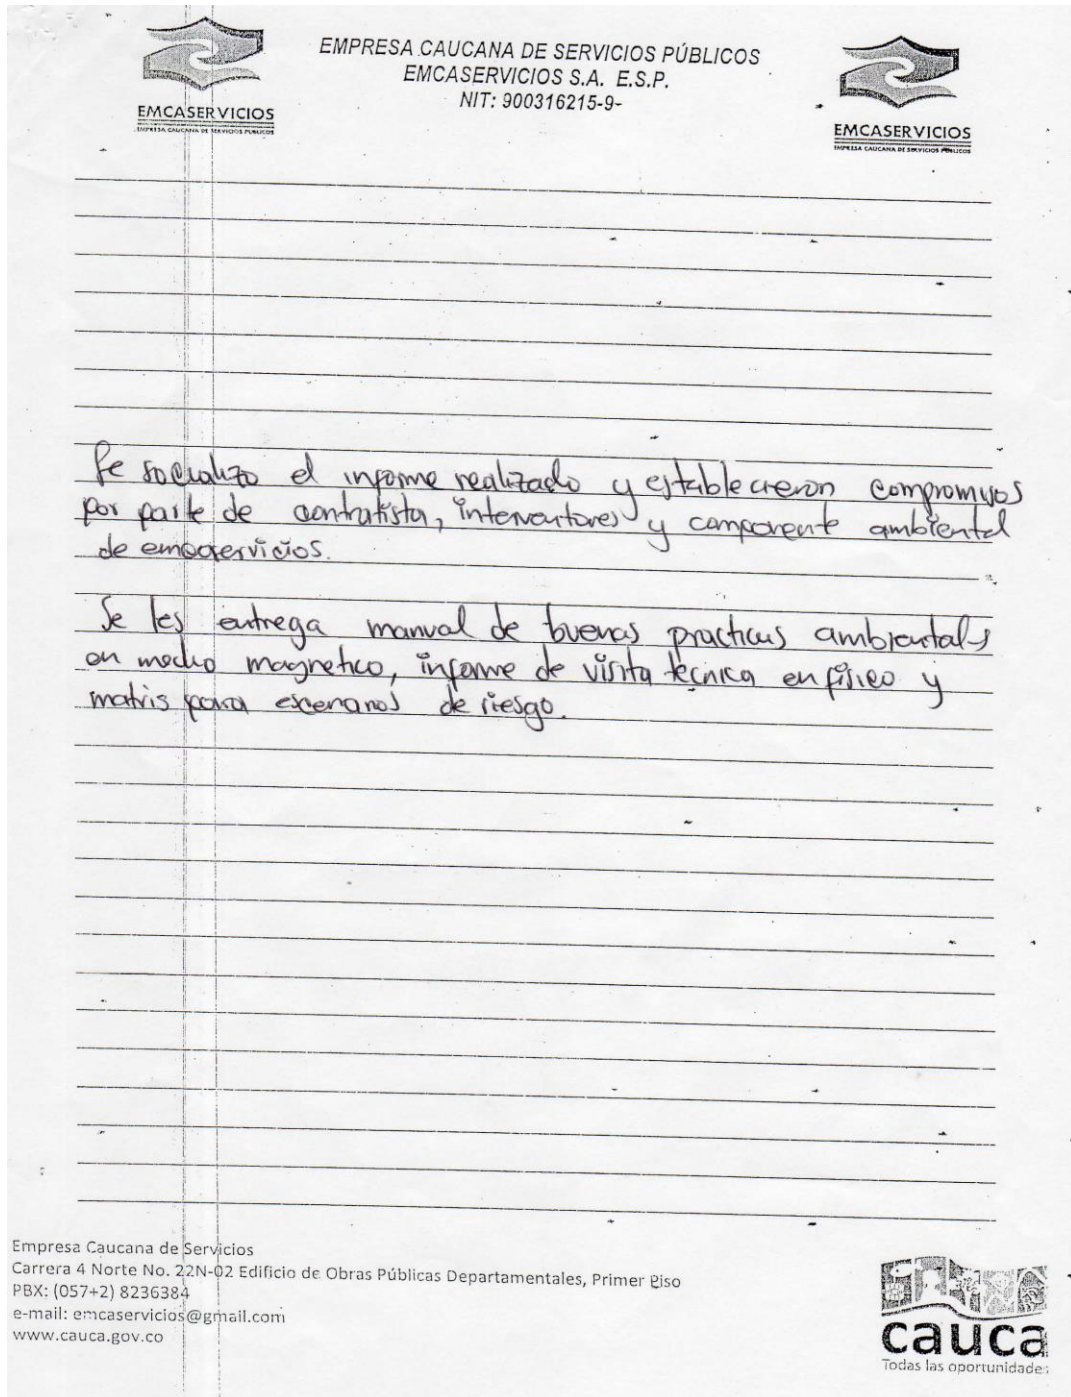 EMPRESA CAUCANA DE SERVICIOS PÚBLICOS
EMCASERVICIOS S.A. E.S.P.
NIT: 900316215-9-
EMCASERVICIOS
EMPRESA CAUCANA DE SERVICIOS PUBLICOS
EMCASERVICIOS
EMPRESA CAUCANA DE SERVICIOS PUBLICOS
Se socializo el informe realizado y establecieron compromisos
por parte de contratista, interventores y componente ambiental
de emcaservicios.
Se les entrega manual de buenas practicas ambientales
en medio magnetico, informe de visita tecnica en fisico y
matris para escenarios de riesgo.
Empresa Caucana de Servicios
Carrera 4 Norte No. 22N-02 Edificio de Obras Públicas Departamentales, Primer Piso
PBX: (057+2) 8236384
e-mail: emcaservicios@gmail.com
www.cauca.gov.co
cauca
Todas las oportunidades